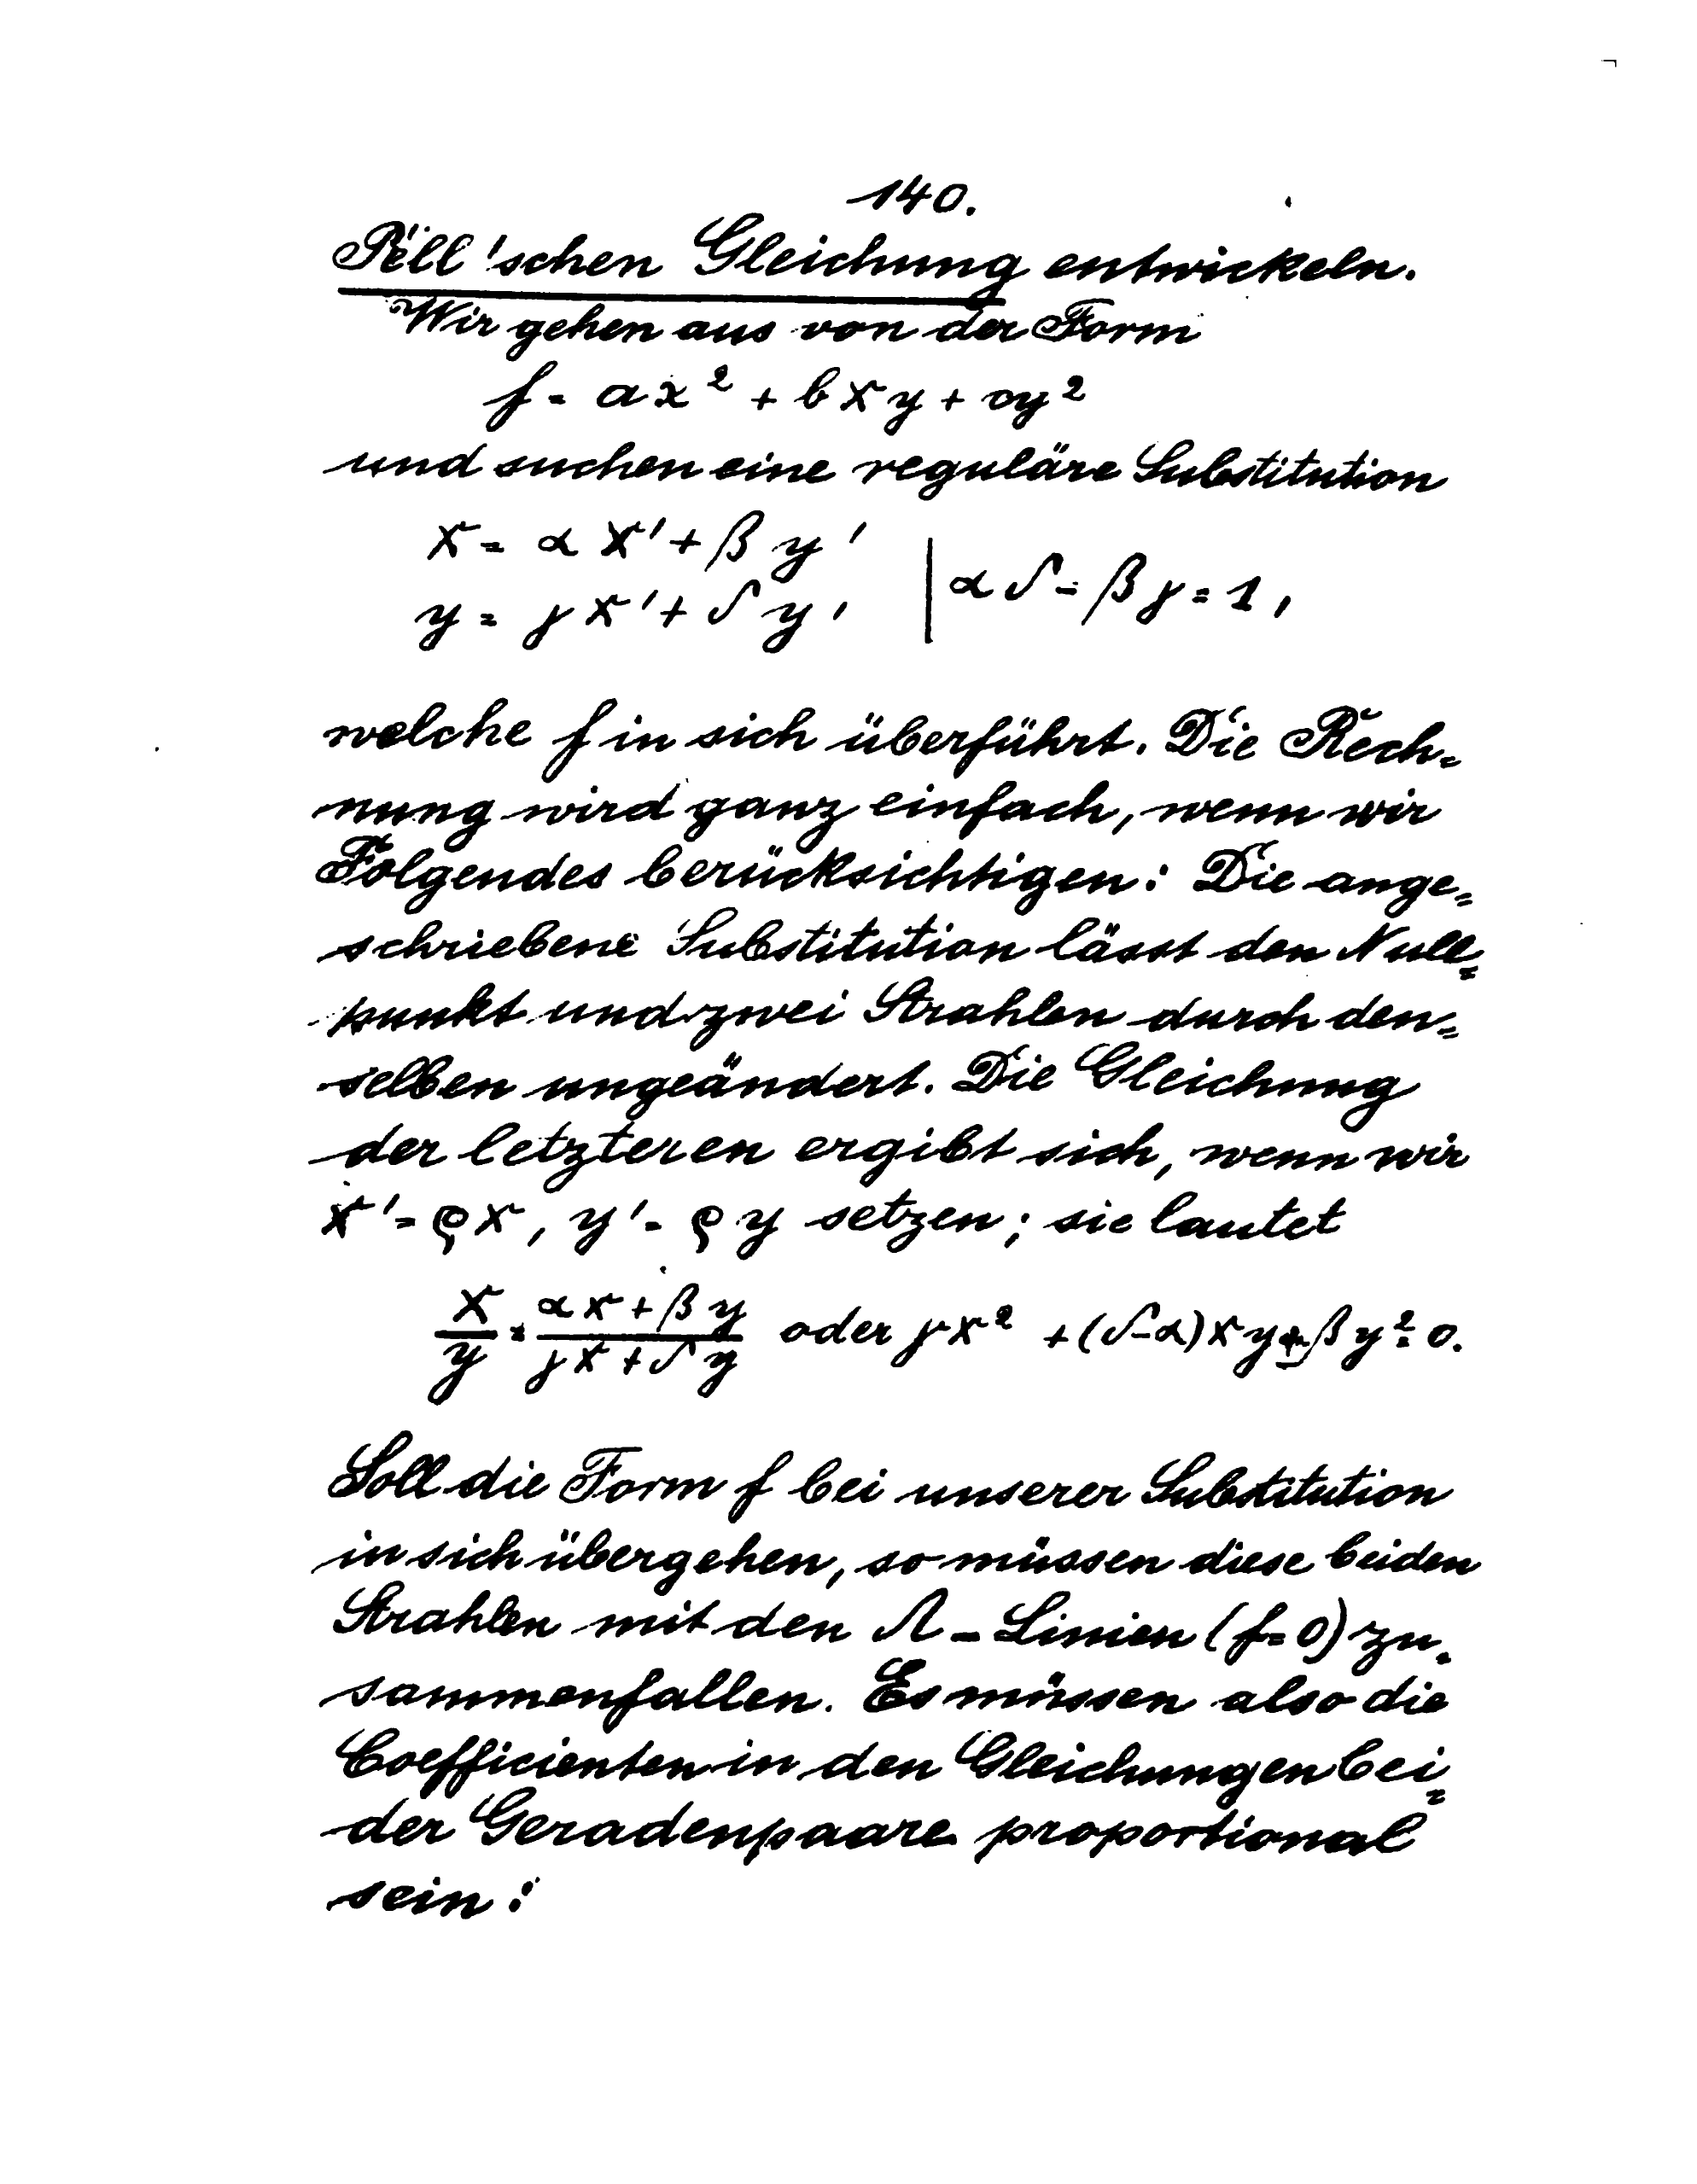 140.
Pell'schen Gleichung entwickeln.
Wir gehen aus von der Form
f = ax² + bxy + cy²
und suchen eine reguläre Substitution
x = αx' + βy'
y = γx' + δy' | αδ - βγ = 1,
welche f in sich überführt. Die Rech-
nung wird ganz einfach, wenn wir
Folgendes berücksichtigen: Die ange-
schriebene Substitution lässt den Null-
punkt und zwei Strahlen durch den-
selben ungeändert. Die Gleichung
der letzteren ergibt sich, wenn wir
x' = ϱx, y' = ϱy setzen; sie lautet
x/y = (αx + βy)/(γx + δy) oder γx² + (δ-α)xy - βy² = 0.
Soll die Form f bei unserer Substitution
in sich übergehen, so müssen diese beiden
Strahlen mit den Λ-Linien (f=0) zu-
sammenfallen. Es müssen also die
Coefficienten in den Gleichungen bei-
der Geradenpaare proportional
sein: